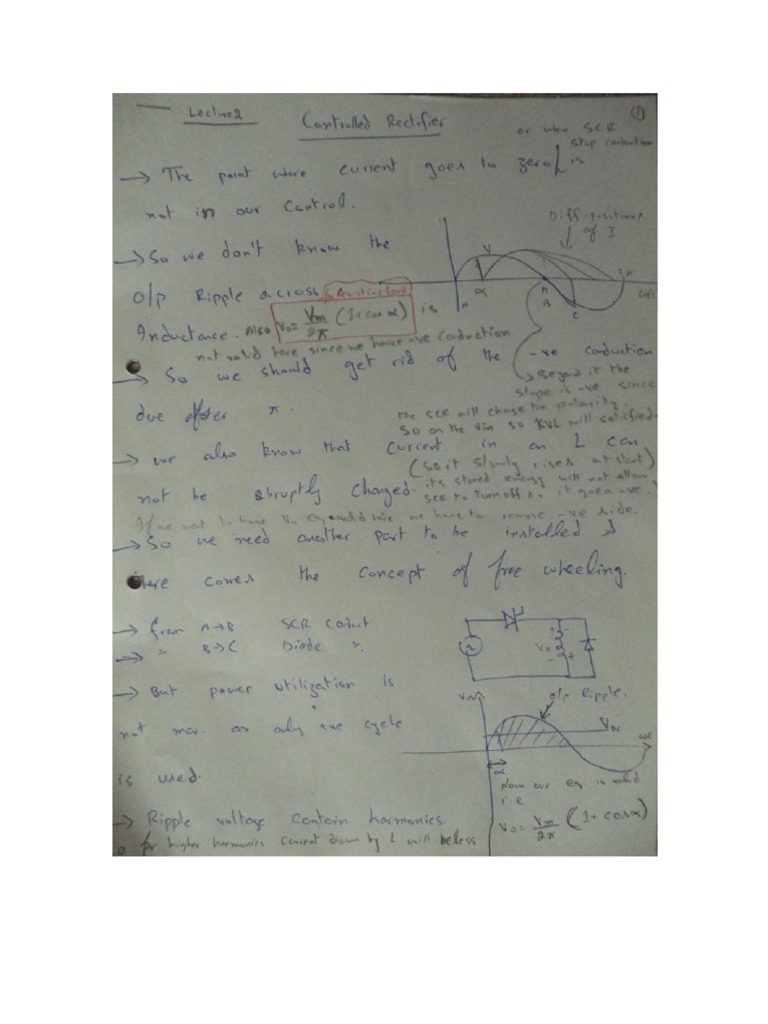 Lecture2
Controlled Rectifier
①
or when SCR
stop conduction
→ The point where current goes to zero is
not in our control.
Diff. positions
of I
→ So we don't know the
V
α
A
B
C
o/p Ripple across for Resistive Load
Inductance. Also Vo = Vm/2π (1 + cos α) is
not valid here since we have -ve conduction
→ So we should get rid of the -ve conduction
→ Beyond it the
slope is -ve since
due after π.
the SCR will change the polarity.
So on the Vin so KVL will satisfied
→ we also know that current in an L can
(So it slowly rises at start)
not be abruptly changed. its stored energy will not allow
SCR to turn off so it goes -ve.
If we want to have Vo eq valid here we have to remove -ve side.
→ So we need another part to be installed &
here comes the concept of free wheeling.
→ from A→B SCR Coduct
→ " B→C Diode ".
Vo
→ But power utilization is
o/p Ripple.
Vin
not max. as only +ve cycle
VDC
ωt
is used.
α
Now our eq. is valid
i.e
→ Ripple voltage contain harmonics.
Vo = Vm/2π (1 + cos α)
for higher harmonics current drawn by L will be less